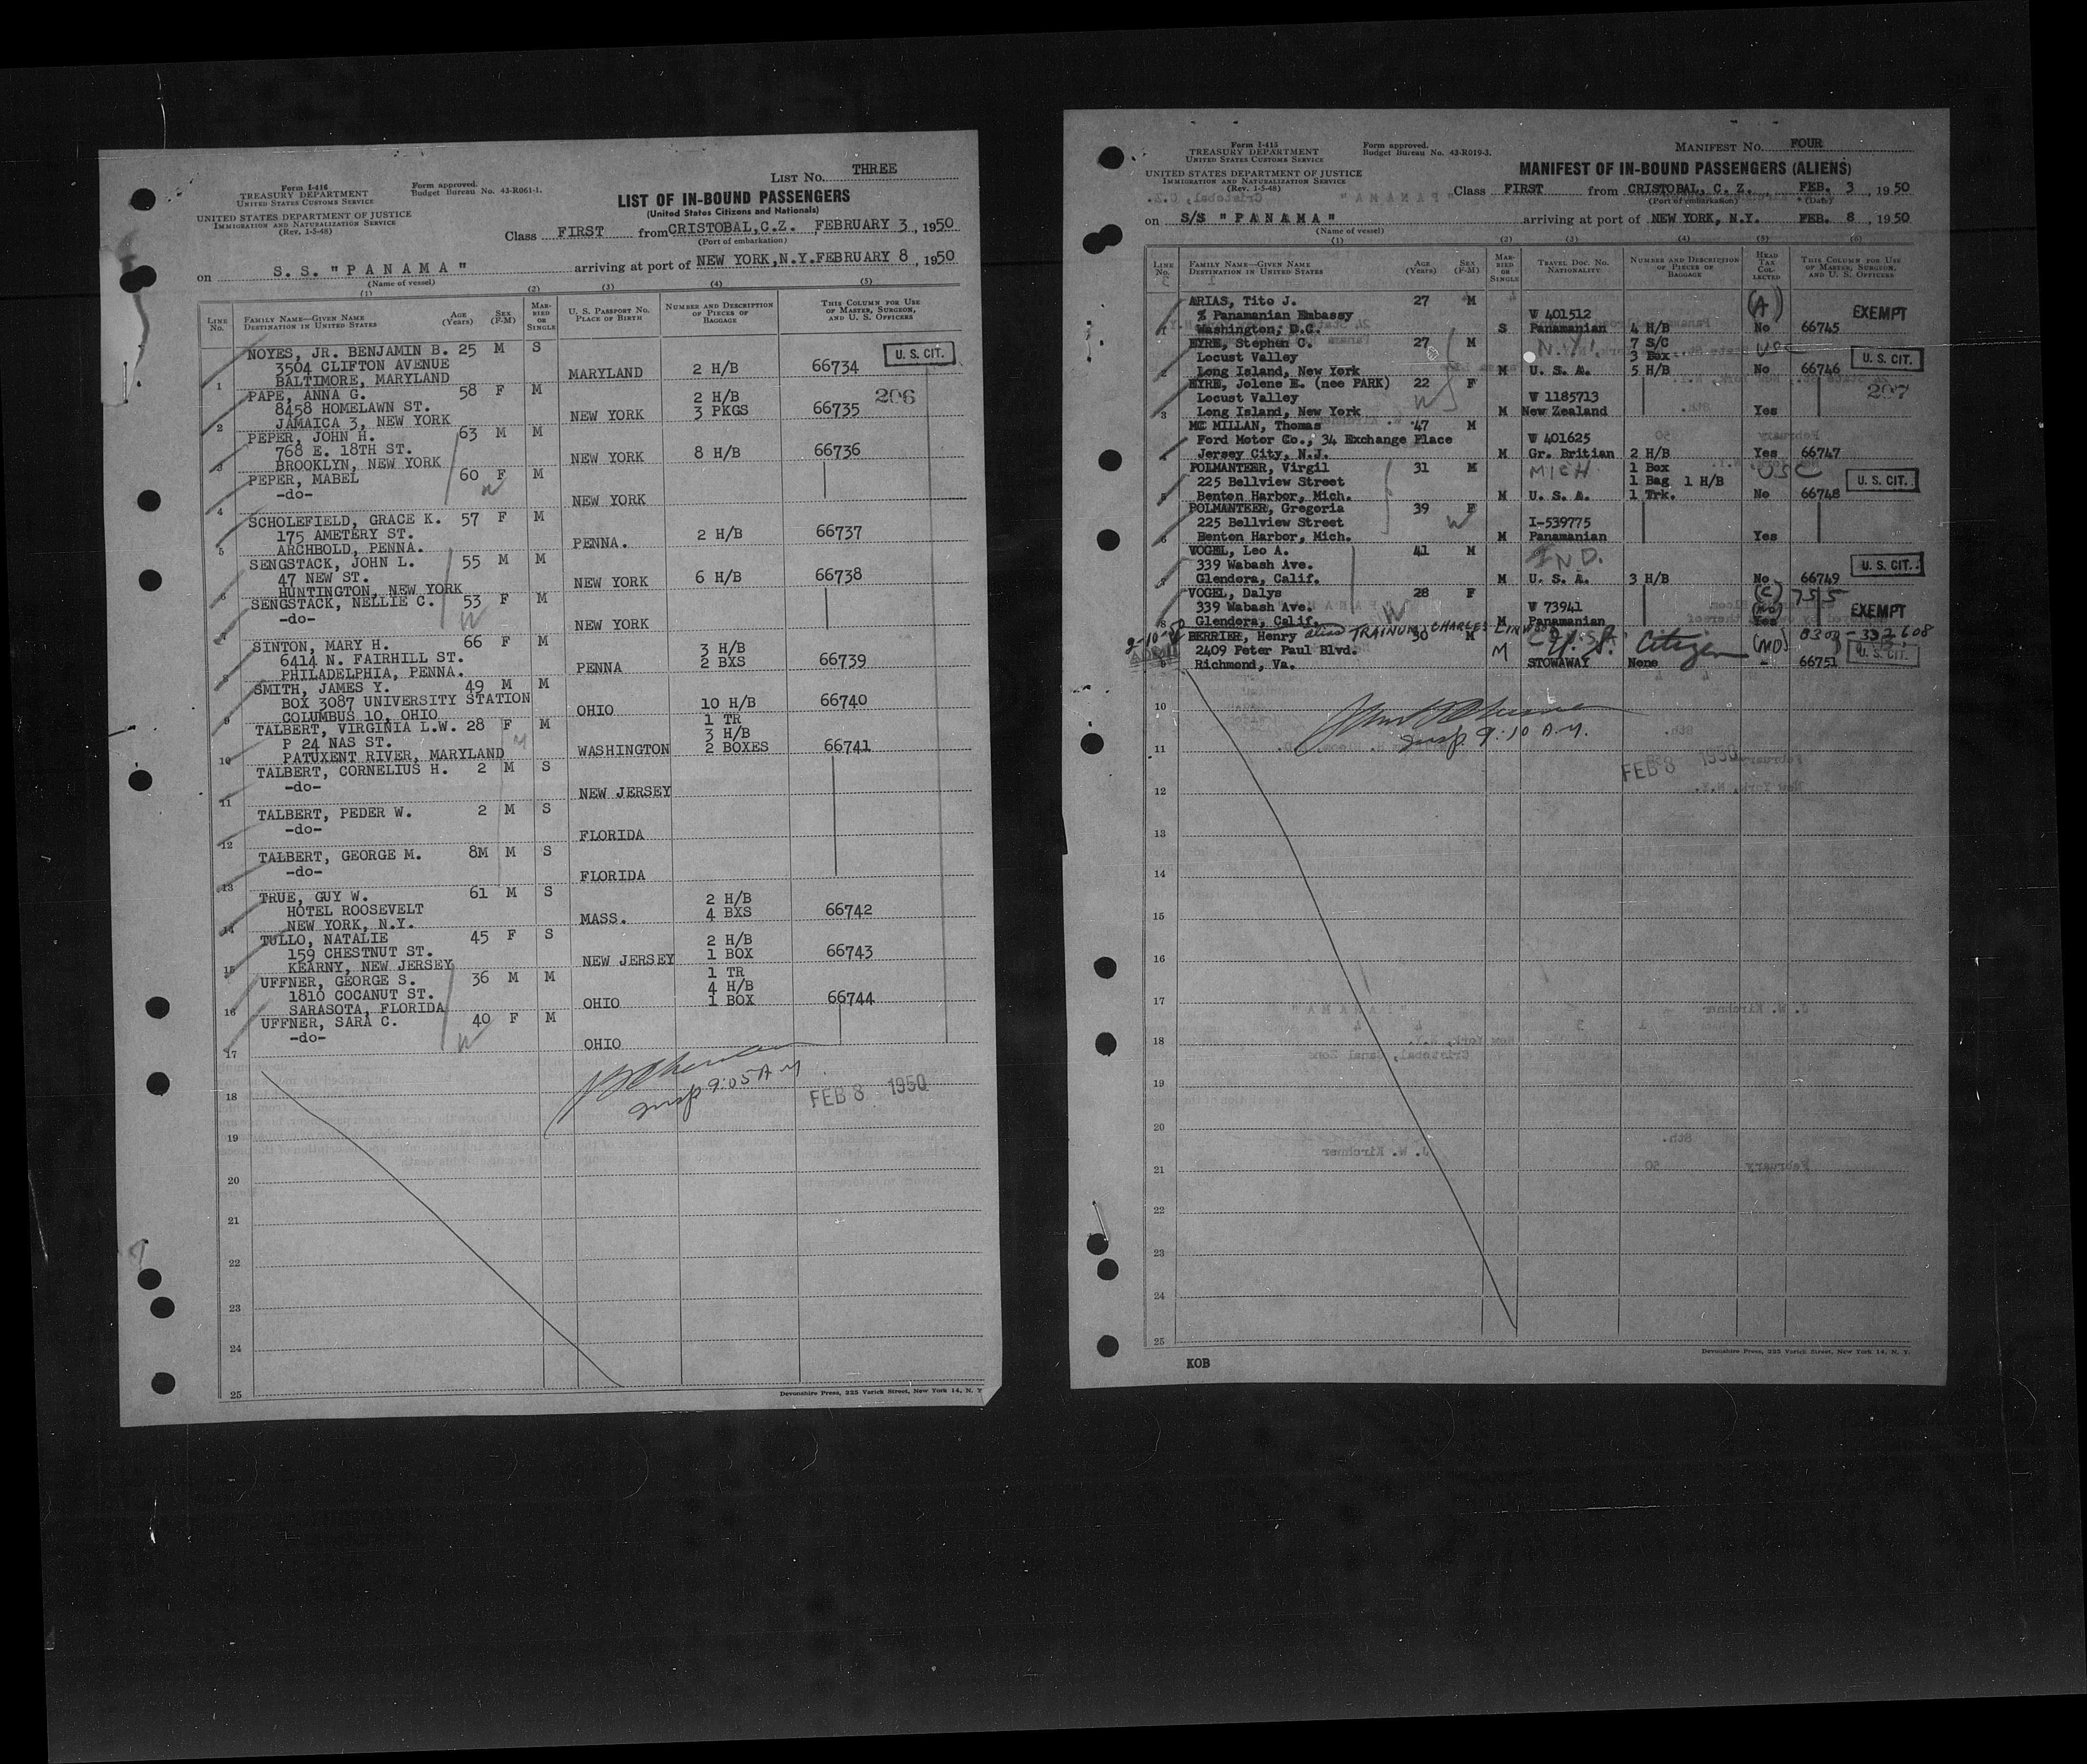 LIST No. THREE
Form I-416
TREASURY DEPARTMENT
UNITED STATES CUSTOMS SERVICE
Form approved.
Budget Bureau No. 43-R061-1.
UNITED STATES DEPARTMENT OF JUSTICE
IMMIGRATION AND NATURALIZATION SERVICE
(Rev. 1-5-48)
LIST OF IN-BOUND PASSENGERS
(United States Citizens and Nationals)
Class FIRST from CRISTOBAL, C.Z. FEBRUARY 3, 1950
(Port of embarkation)
on S. S. "PANAMA" arriving at port of NEW YORK, N.Y. FEBRUARY 8, 1950
(Name of vessel)
(1) (2) (3) (4) (5)
LINE No. FAMILY NAME—GIVEN NAME DESTINATION IN UNITED STATES AGE (Years) SEX (F-M) MARRIED OR SINGLE U. S. PASSPORT NO. PLACE OF BIRTH NUMBER AND DESCRIPTION OF PIECES OF BAGGAGE THIS COLUMN FOR USE OF MASTER, SURGEON, AND U. S. OFFICERS
NOYES, JR. BENJAMIN B. 25 M S U. S. CIT.
3504 CLIFTON AVENUE MARYLAND 2 H/B 66734
1 BALTIMORE, MARYLAND
PAPE, ANNA G. 58 F M 2 H/B 206
8458 HOMELAWN ST. NEW YORK 3 PKGS 66735
2 JAMAICA 3, NEW YORK
PEPER, JOHN H. 63 M M
768 E. 18TH ST. NEW YORK 8 H/B 66736
3 BROOKLYN, NEW YORK
PEPER, MABEL 60 F M
-do- W
4 NEW YORK
SCHOLEFIELD, GRACE K. 57 F M
175 AMETERY ST. PENNA. 2 H/B 66737
5 ARCHBOLD, PENNA.
SENGSTACK, JOHN L. 55 M M
47 NEW ST. NEW YORK 6 H/B 66738
6 HUNTINGTON, NEW YORK
SENGSTACK, NELLIE C. 53 F M
-do- W
7 NEW YORK
SINTON, MARY H. 66 F M 3 H/B
6414 N. FAIRHILL ST. PENNA 2 BXS 66739
8 PHILADELPHIA, PENNA.
SMITH, JAMES Y. 49 M M
BOX 3087 UNIVERSITY STATION OHIO 10 H/B 66740
9 COLUMBUS 10, OHIO
TALBERT, VIRGINIA L.W. 28 F M 1 TR
P 24 NAS ST. 3 H/B
10 PATUXENT RIVER, MARYLAND WASHINGTON 2 BOXES 66741
TALBERT, CORNELIUS H. 2 M S
-do-
11 NEW JERSEY
TALBERT, PEDER W. 2 M S
-do-
12 FLORIDA
TALBERT, GEORGE M. 8M M S
-do-
13 FLORIDA
TRUE, GUY W. 61 M S 2 H/B
HOTEL ROOSEVELT MASS. 4 BXS 66742
14 NEW YORK, N.Y.
TULLO, NATALIE 45 F S 2 H/B
159 CHESTNUT ST. NEW JERSEY 1 BOX 66743
15 KEARNY, NEW JERSEY
UFFNER, GEORGE S. 36 M M 1 TR
1810 COCANUT ST. 4 H/B
16 SARASOTA, FLORIDA OHIO 1 BOX 66744
UFFNER, SARA C. 40 F M
-do- W
17 OHIO
Insp 9:05 A M
FEB 8 1950
18
19
20
21
22
23
24
25
Devonshire Press, 225 Varick Street, New York 14, N. Y.
MANIFEST No. FOUR
Form I-415
TREASURY DEPARTMENT
UNITED STATES CUSTOMS SERVICE
Form approved.
Budget Bureau No. 43-R019-3.
UNITED STATES DEPARTMENT OF JUSTICE
IMMIGRATION AND NATURALIZATION SERVICE
(Rev. 1-5-48)
MANIFEST OF IN-BOUND PASSENGERS (ALIENS)
Class FIRST from CRISTOBAL, C. Z., FEB. 3, 1950
(Port of embarkation) (Date)
on S/S "PANAMA" arriving at port of NEW YORK, N.Y. FEB. 8, 1950
(Name of vessel)
(1) (2) (3) (4) (5) (6)
LINE No. FAMILY NAME—GIVEN NAME DESTINATION IN UNITED STATES AGE (Years) SEX (F-M) MARRIED OR SINGLE TRAVEL DOC. NO. NATIONALITY NUMBER AND DESCRIPTION OF PIECES OF BAGGAGE HEAD TAX COLLECTED THIS COLUMN FOR USE OF MASTER, SURGEON, AND U. S. OFFICERS
ARIAS, Tito J. 27 M (A) EXEMPT
% Panamanian Embassy V 401512
1 Washington, D.C. S Panamanian 4 H/B No 66745
EYRE, Stephen C. 27 M N.Y. 7 S/C
Locust Valley 3 Box U. S. CIT.
2 Long Island, New York M U. S. A. 5 H/B No 66746
EYRE, Jolene E. (nee PARK) 22 F 207
Locust Valley W V 1185713
3 Long Island, New York M New Zealand Yes
MC MILLAN, Thomas 47 M
Ford Motor Co., 34 Exchange Place V 401625
4 Jersey City, N.J. M Gr. Britian 2 H/B Yes 66747
POLMANTEER, Virgil 31 M MICH. 1 Box USC
225 Bellview Street 1 Bag 1 H/B U. S. CIT.
5 Benton Harbor, Mich. M U. S. A. 1 Trk. No 66748
POLMANTEER, Gregoria 39 F
225 Bellview Street W I-539775
6 Benton Harbor, Mich. M Panamanian Yes
VOGEL, Leo A. 41 M IND.
339 Wabash Ave. U. S. CIT.
7 Glendora, Calif. M U. S. A. 3 H/B No 66749
VOGEL, Dalys 28 F (C) 755
339 Wabash Ave. W V 73941 (No) EXEMPT
8 Glendora, Calif. M Panamanian Yes
2-10-50 BERRIER, Henry alias TRAINUM, CHARLES LINWOOD 30 M U.S. Citizen (NO) 0300-332608
2409 Peter Paul Blvd. M U. S. CIT.
9 Richmond, Va. STOWAWAY None - 66751
Insp. 9:10 A.M.
FEB 8 1950
10
11
12
13
14
15
16
17
18
19
20
21
22
23
24
25
KOB
Devonshire Press, 225 Varick Street, New York 14, N. Y.